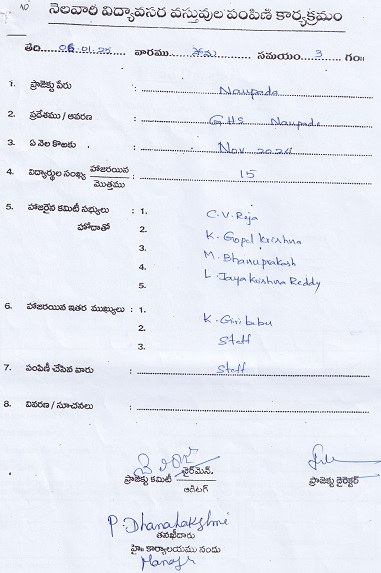 నెలవారి విద్యావసర వస్తువుల పంపిణి కార్యక్రమం
తేది..... 06.01.25 వారము..... సోమ సమయం..... 3 గం॥
1. ప్రాజెక్టు పేరు : Naupada
2. ప్రదేశము / ఆవరణ : GHS Naupada
3. ఏ నెల కొఱకు : Nov. 2024
4. విద్యార్థుల సంఖ్య హాజరయిన / మొత్తము : 15
5. హాజరైన కమిటీ సభ్యులు : 1. C.V. Raja
హోదాతో 2. K. Gopal Krishna
3. M. Bhanuprakash
4. L. Jaya Krishna Reddy
5.
6. హాజరయిన ఇతర ముఖ్యులు : 1. K. Giribabu
2. Staff
3.
7. పంపిణీ చేసిన వారు : Staff
8. వివరణ / సూచనలు :
ప్రాజెక్టు కమిటీ ఛైర్మెన్.
ఆడిటర్
ప్రాజెక్టు డైరెక్టర్
P. Dhanalakshmi
తనఖీదారు
హై॥ కార్యాలయము నందు
Manager